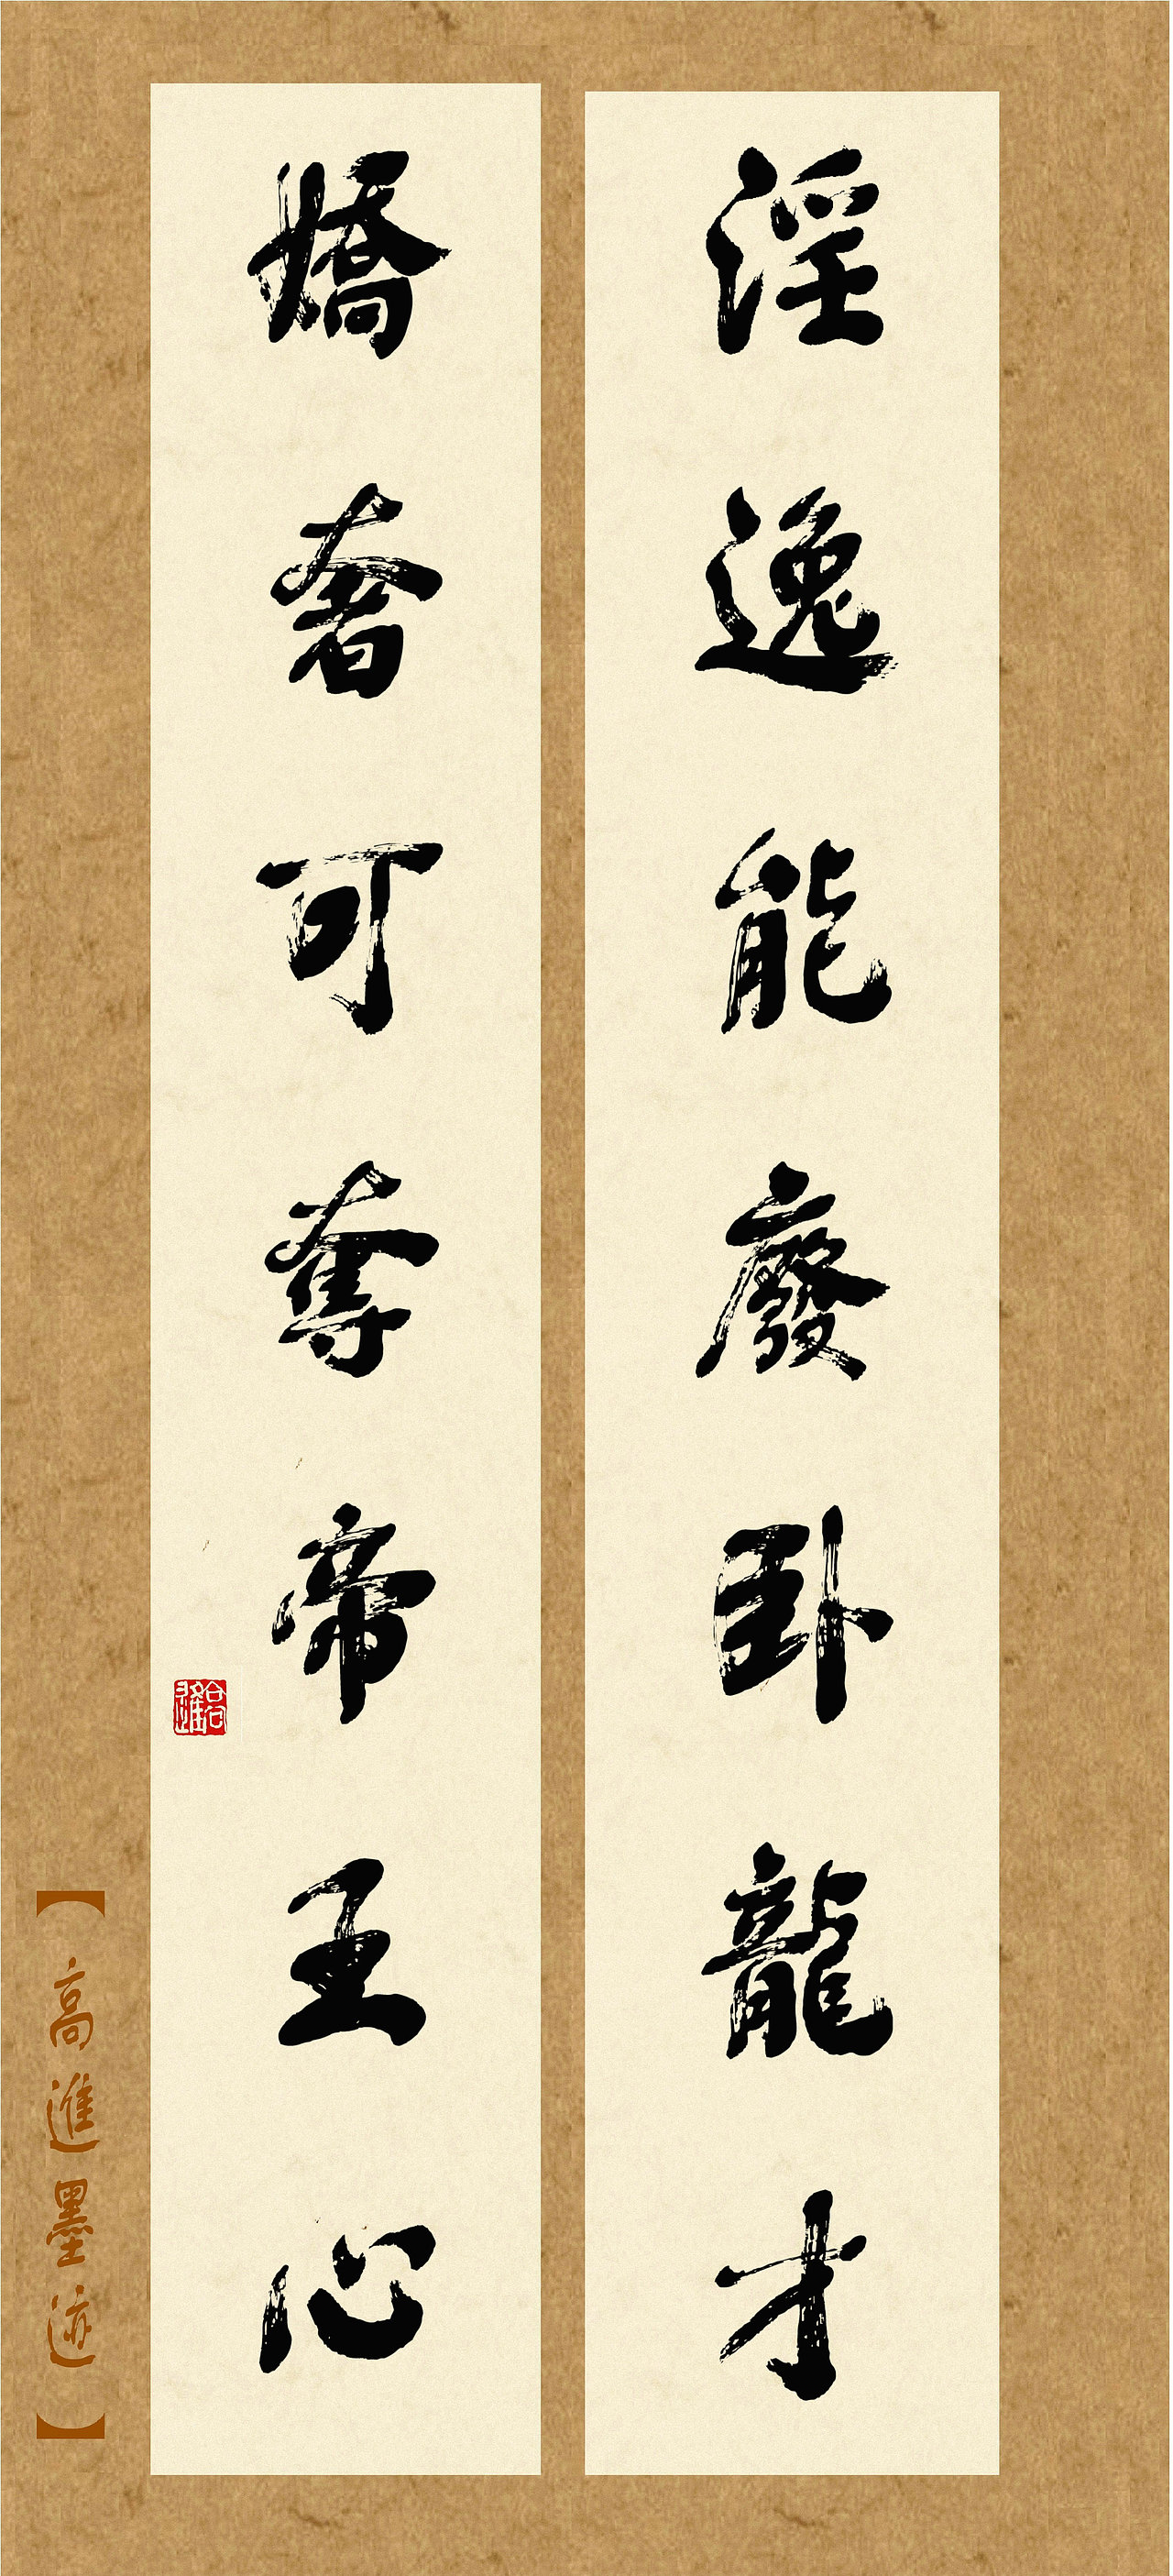 淫逸能廢卧龍才
嬌奢可奪帝王心
高進
【高進墨迹】